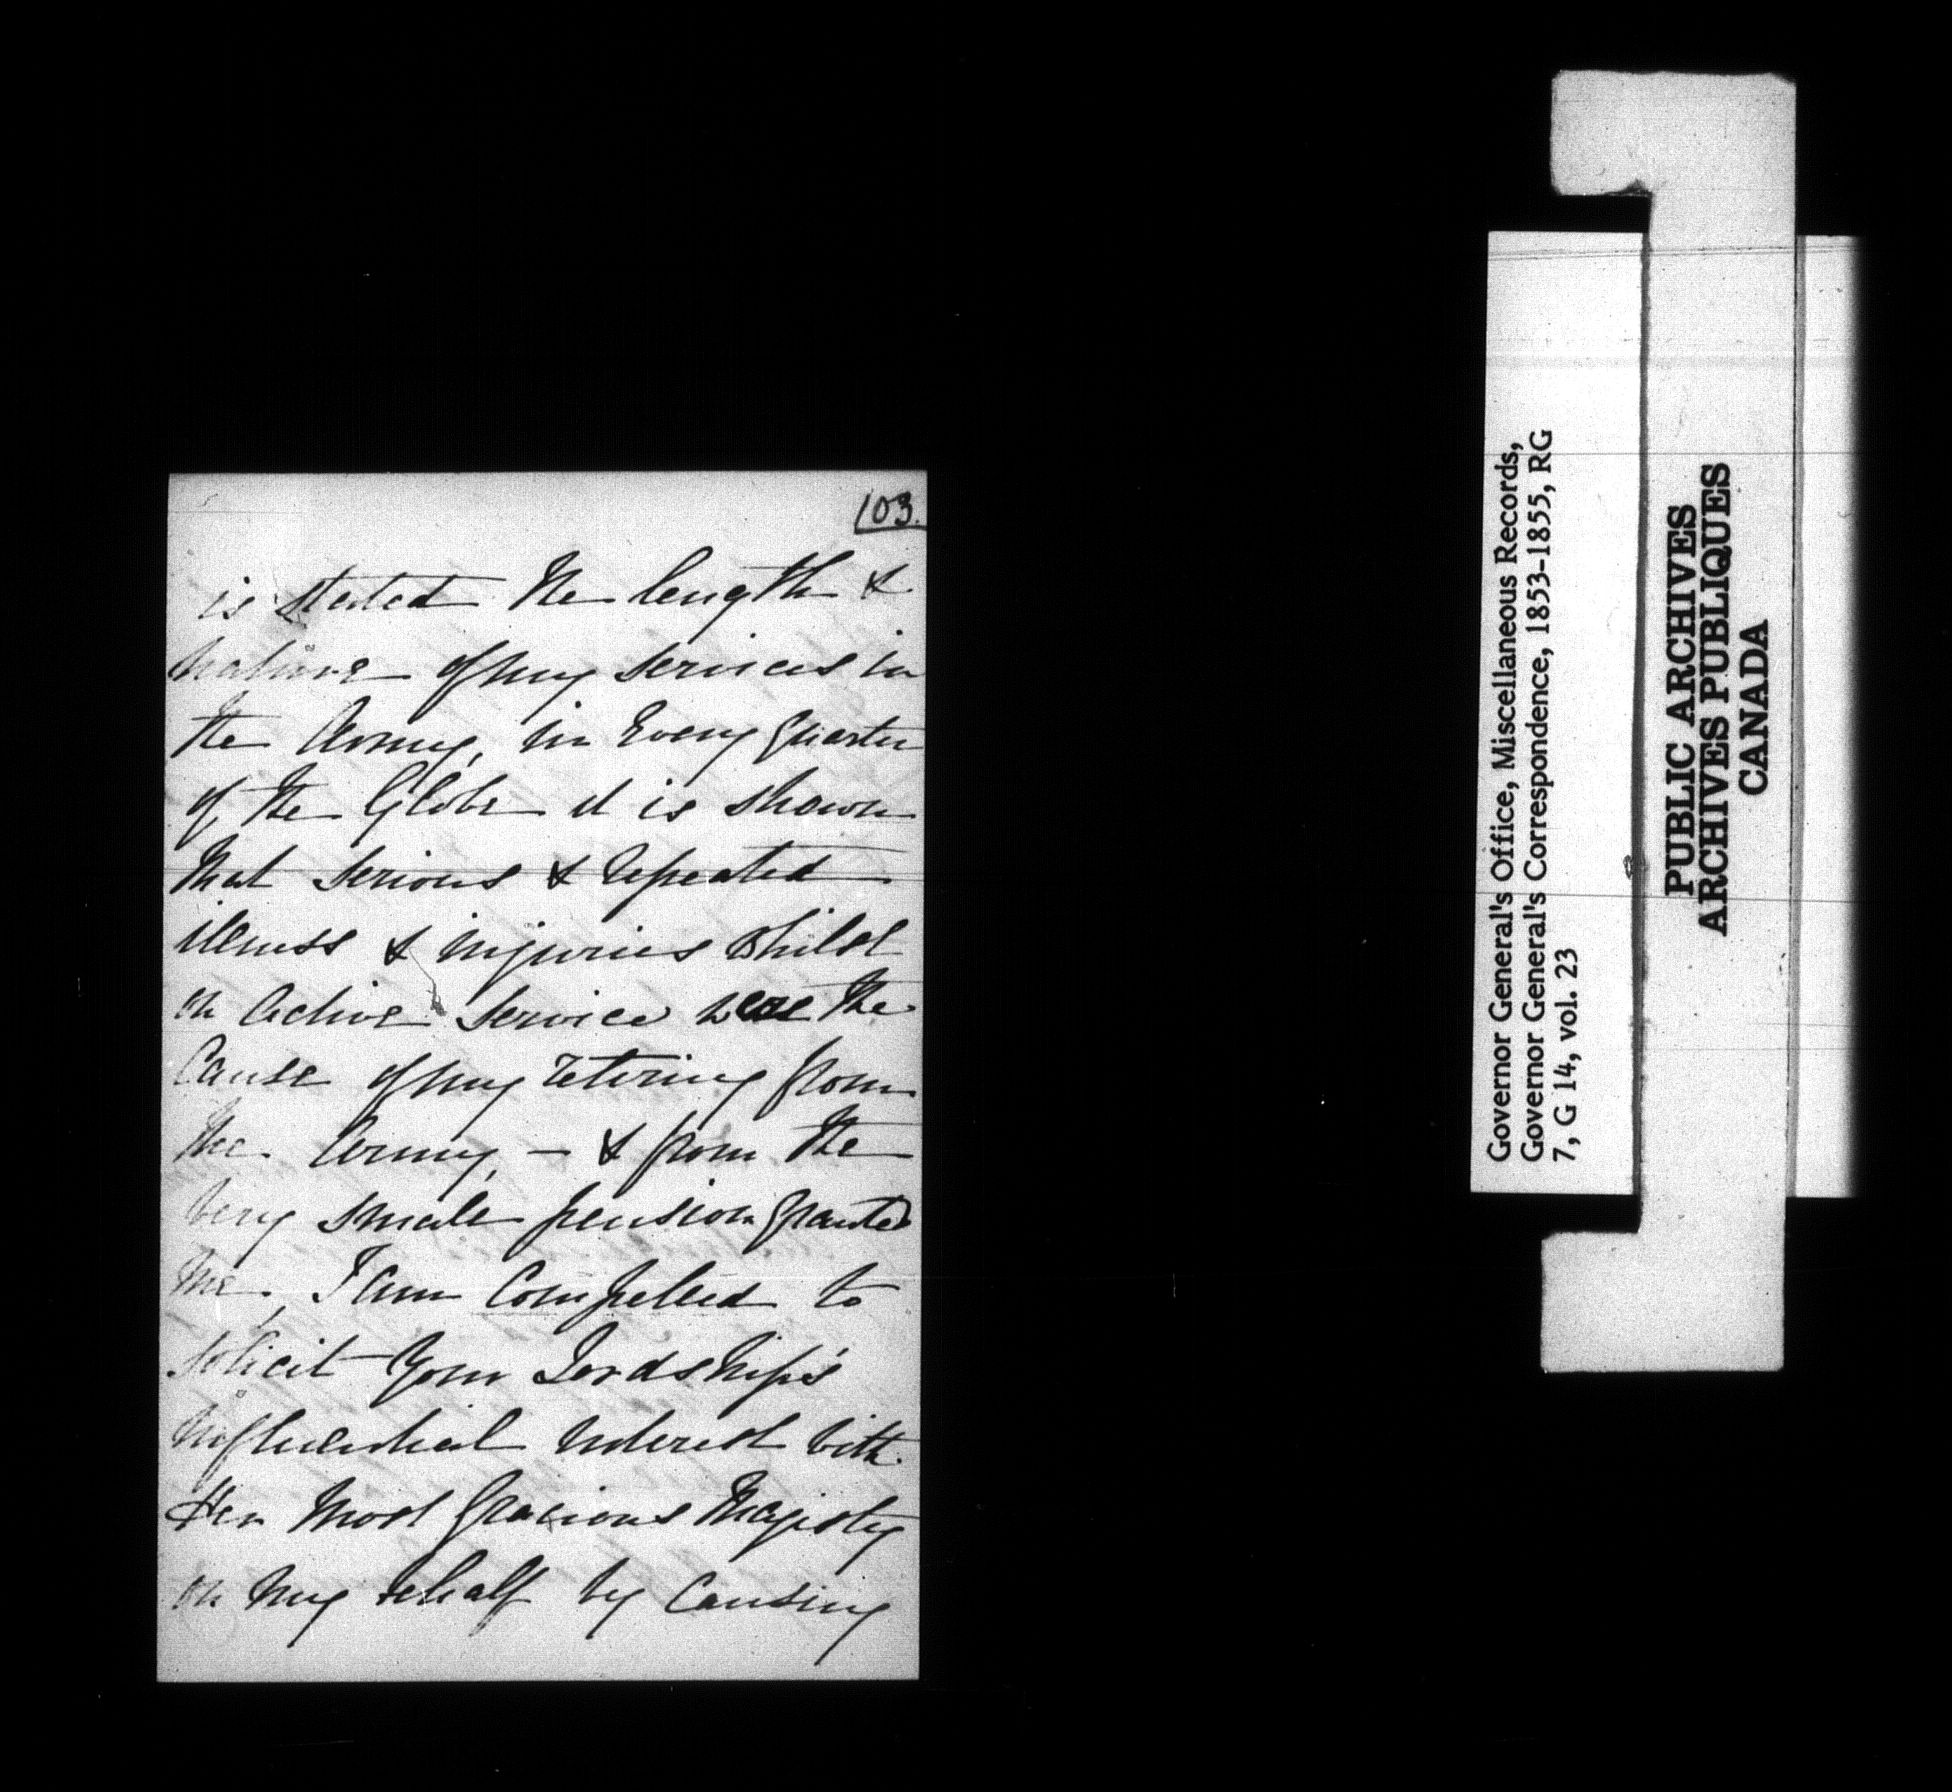 103.
is stated the length &
nature of my services in
the Army, in Every Quarter
of the Globe it is shown
that serious & repeated
illness & injuries whilst
on Active Service were the
Cause of my retiring from
the Army, - & from the
very small pension granted
me, I am Compelled to
solicit Your Lordship's
influential interest with
Her Most Gracious Majesty
on my behalf by Causing
Governor General's Office, Miscellaneous Records,
Governor General's Correspondence, 1853-1855, RG
7, G 14, vol. 23
PUBLIC ARCHIVES
ARCHIVES PUBLIQUES
CANADA